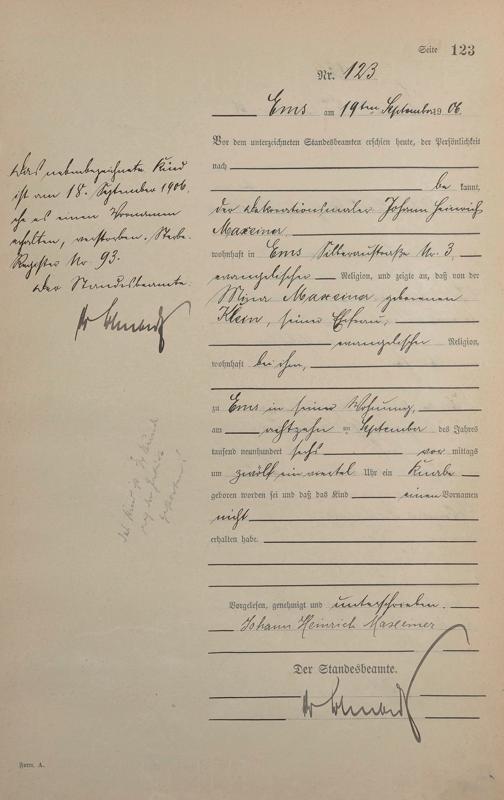 Seite 123
Nr. 123
Ems am 19ten September 1906.
Vor dem unterzeichneten Standesbeamten erschien heute, der Persönlichkeit
nach
be kannt,
der Dekorationsmaler Johann Heinrich
Maxeiner
wohnhaft in Ems Silberaustraße Nr. 3,
evangelischer Religion, und zeigte an, daß von der
Mina Maxeiner, geborenen
Klein, seiner Ehefrau,
evangelischer Religion,
wohnhaft bei ihm,
zu Ems in seiner Wohnung,
am achtzehn ten September des Jahres
tausend neunhundert sechs vor mittags
um zwölf ein viertel Uhr ein Knabe
geboren worden sei und daß das Kind einen Vornamen
nicht
erhalten habe.
Vorgelesen, genehmigt und unterschrieben.
Johann Heinrich Maxeiner
Der Standesbeamte.
Das nebenbezeichnete Kind
ist am 18. September 1906,
ehe es einen Vornamen
erhalten, verstorben. Sterbe
Register Nr. 93.
Der Standesbeamte.
Form. A.